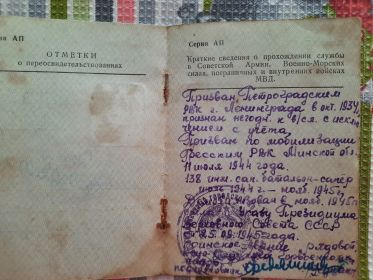 Серия АП
ОТМЕТКИ
о переосвидетельствованиях
Серия АП
Краткие сведения о прохождении службы
в Советской Армии, Военно-Морских
силах, пограничных и внутренних войсках
МВД.
Призван Петроградским
РВК г. Ленинграда в окт. 1934,
признан негодн. к в/сл. с искл
чением с учёта,
Призван по мобилизации
РВК Минской обл.
11 июля 1944 года.
138 инж. сап. батальон - сапёр
июль 1944 г. - нояб. 1945 г.
Демобилизован в нояб. 1945г.
Указу Президиума
Верховного Совета СССР
от 25.09.1945 года.
Воинское звание рядовой,